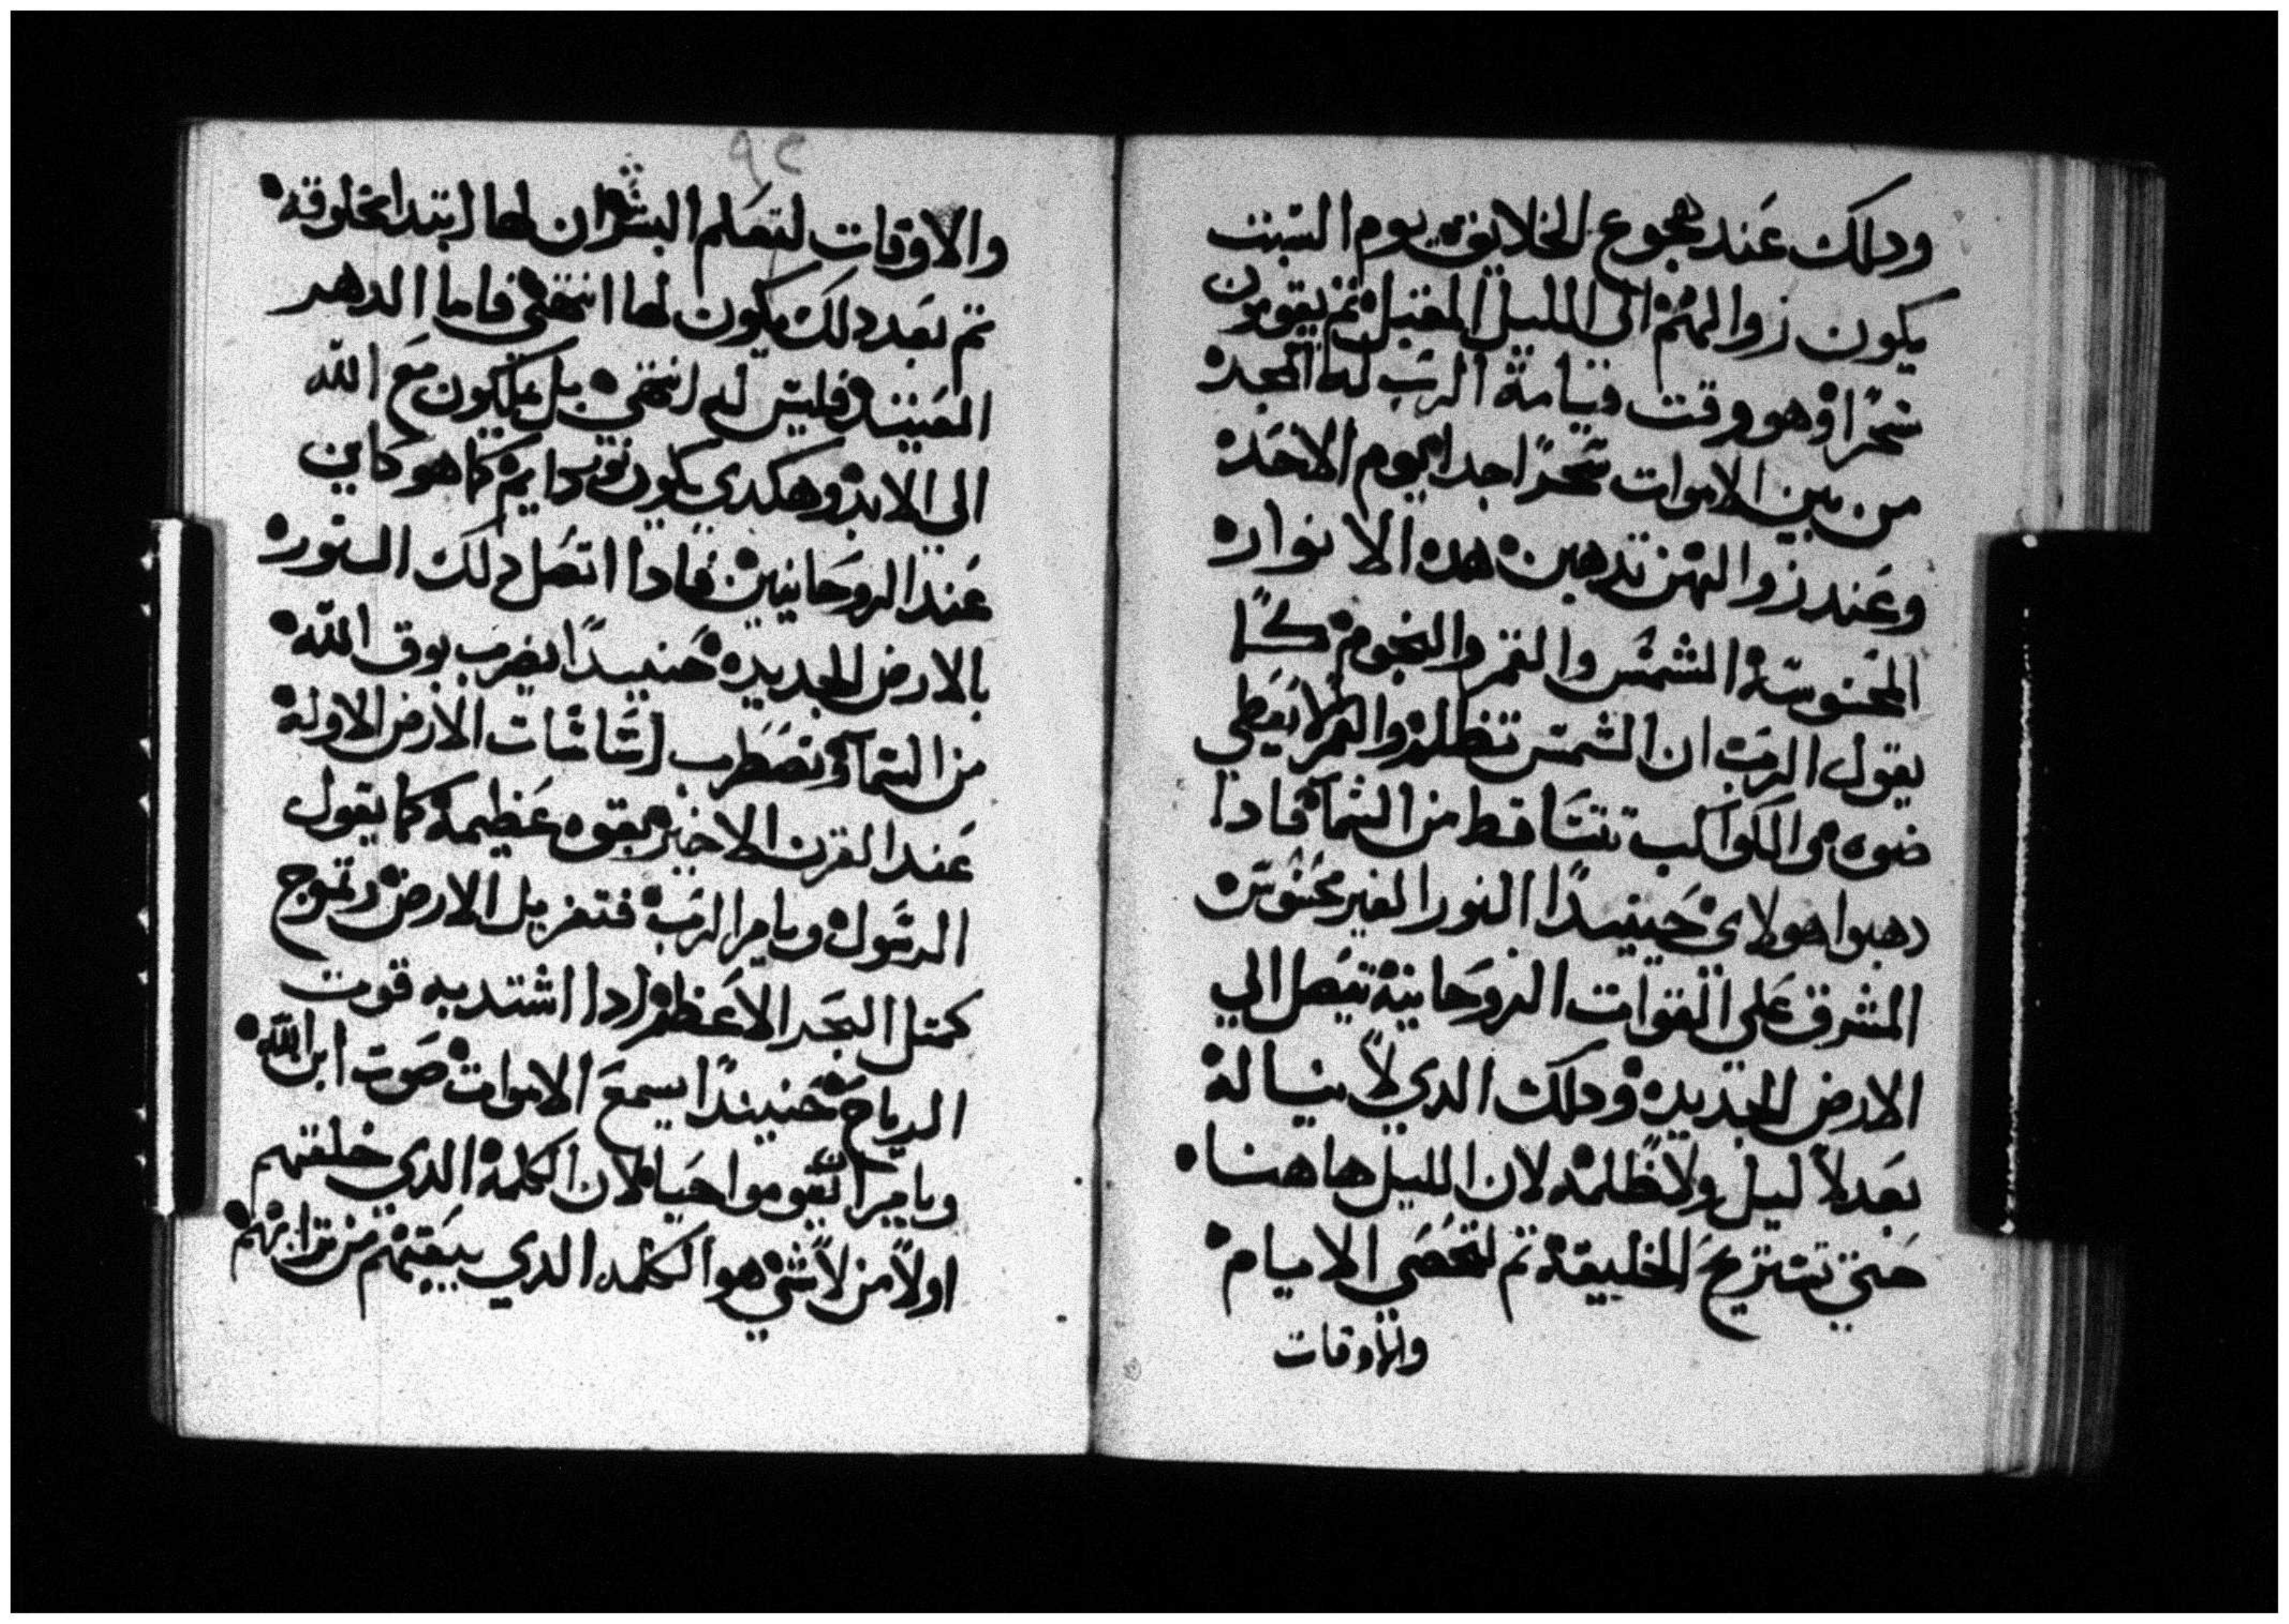 ودلك عند هجوع الخلايق يوم السبت
يكون زوالهم الى الليل المقبل ثم يقومون
سحرًا وهو وقت قيامة الرب له المجد
من بين الاموات سحرًا جدا يوم الاحد
وعند زوالهن تدهبن هده الانوار
المحسوسة الشمس والقمر والنجوم كما
يقول الرب ان الشمس تظلم والقمر لا يعطي
ضوه والكواكب تتساقط من السمآ فادا
دهبوا هولاى حينيدًا النور الغير محسوس
المشرق على القوات الروحانية يتصل الي
الارض الجديده ودلك الدي لا يناله
بعد لا ليل ولا ظلمه لان الليل هاهنا
حتي تستريح الخليقة تم لتحصي الايام
والاوقات
٩٢
والاوقات لتعلم البشر ان لها ابتدا مخلوقه
تم بعد دلك يكون لها انتهى فاما الدهر
العتيد فليس له انتهى بل يكون مع الله
الى الابد وهكدي يكون نور دايم كما هو كاين
عند الروحانيين فادا اتصل دلك النور
بالارض الجديده حنييدًا يضرب بوق الله
من السمآ وتضطرب اساسات الارض الاوله
عند القرن الاخير بقوه عظيمة كما يقول
الرسول ويامر الرب فتغربل الارض وتموج
كمتل البحر الاعظم ادا اشتد به قوت
الرياح حنيندًا يسمع الاموات صوت ابن الله
ويامر ان يقوموا احيا لان الكلمة الدي خلقهم
اولاً من لا شي هو الكلمه الدي يقيمهم من ترابهم